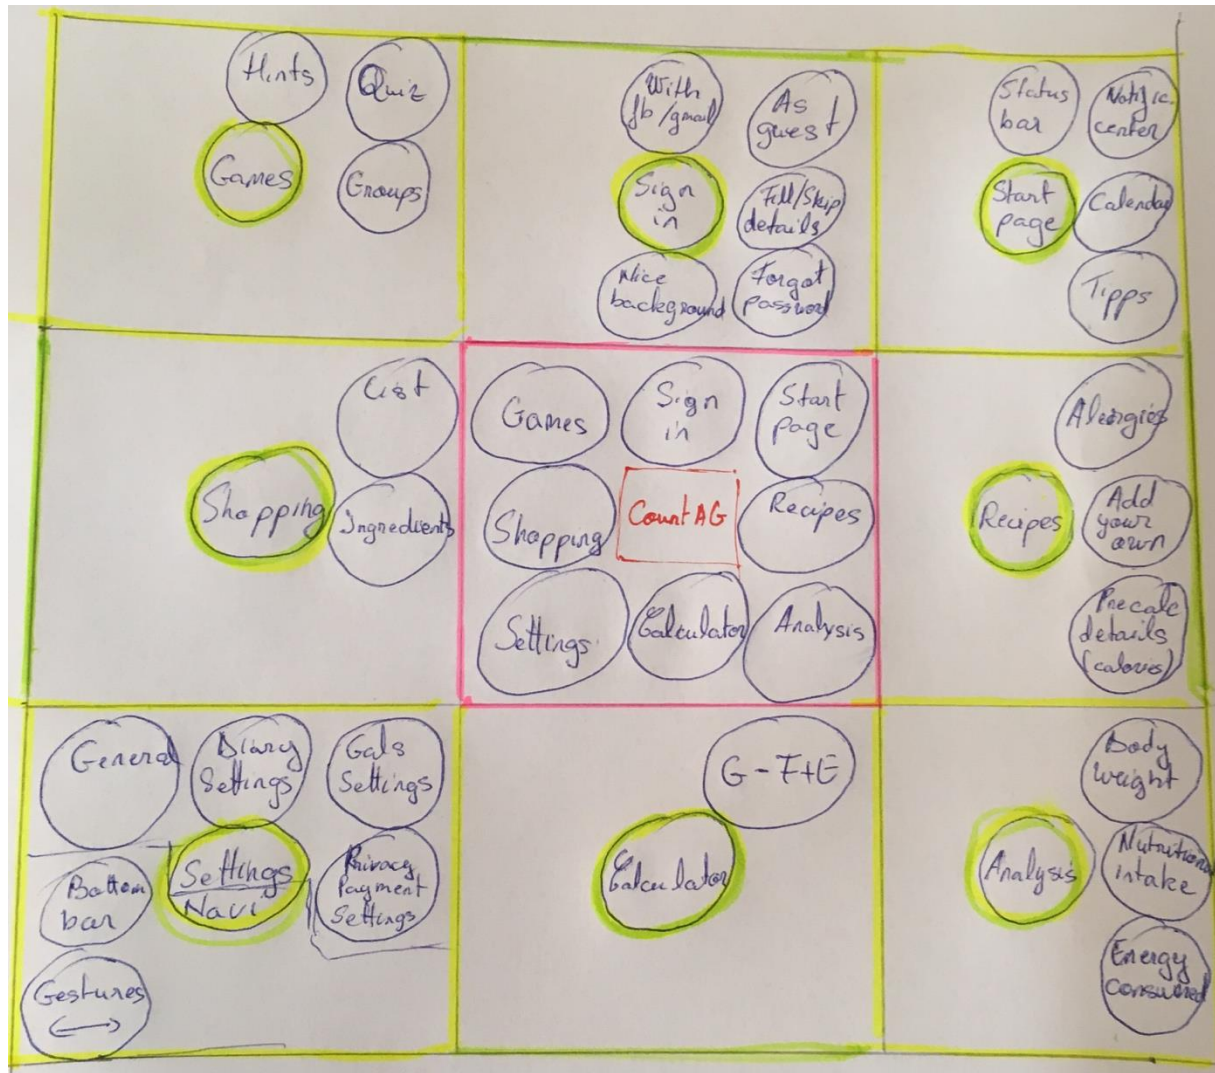 Hints
Quiz
Games
Groups
With
fb/gmail
As
guest
Sign
in
Fill/Skip
details
Nice
background
Forgot
password
Status
bar
Notific.
center
Start
page
Calendar
Tipps
List
Shopping
Ingredients
Games
Sign
in
Start
page
Shopping
CountAG
Recipes
Settings
Calculator
Analysis
Alergies
Recipes
Add
your
own
Precalc
details
(calories)
General
Diary
Settings
Gals
Settings
Settings
Navi
Privacy
Payment
Settings
Bottom
bar
Gestures
G-F+E
Calculator
Body
weight
Analysis
Nutrition
intake
Energy
consumed